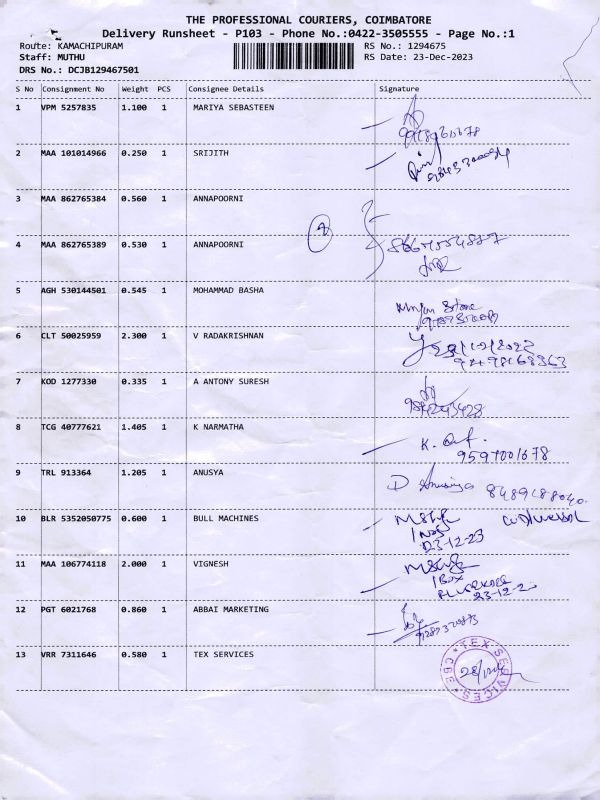 THE PROFESSIONAL COURIERS, COIMBATORE
Delivery Runsheet - P103 - Phone No.:0422-3505555 - Page No.:1
Route: KAMACHIPURAM RS No.: 1294675
Staff: MUTHU RS Date: 23-Dec-2023
DRS No.: DCJB129467501
S No Consignment No Weight PCS Consignee Details Signature
1 VPM 5257835 1.100 1 MARIYA SEBASTEEN
2 MAA 101014966 0.250 1 SRIJITH
3 MAA 862765384 0.560 1 ANNAPOORNI
2
4 MAA 862765389 0.530 1 ANNAPOORNI
5 AGH 530144501 0.545 1 MOHAMMAD BASHA
6 CLT 50025959 2.300 1 V RADAKRISHNAN
7 KOD 1277330 0.335 1 A ANTONY SURESH
8 TCG 40777621 1.405 1 K NARMATHA
9597001678
9 TRL 913364 1.205 1 ANUSYA
D Anusiya
10 BLR 5352050775 0.600 1 BULL MACHINES
23-12-23
11 MAA 106774118 2.000 1 VIGNESH
1 BOX
12 PGT 6021768 0.860 1 ABBAI MARKETING
13 VRR 7311646 0.580 1 TEX SERVICES
* TEX SERVICES * CBE